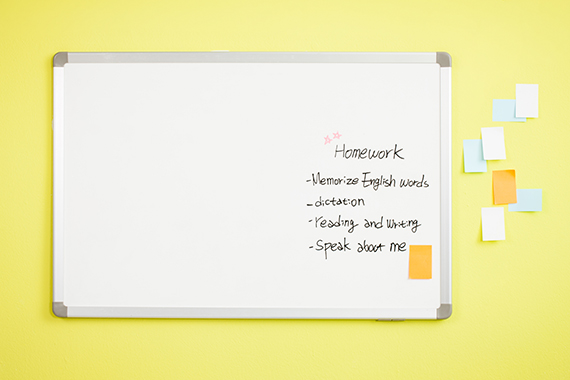 Homework
-Memorize English words
-dictation
-reading and writing
-Speak about me